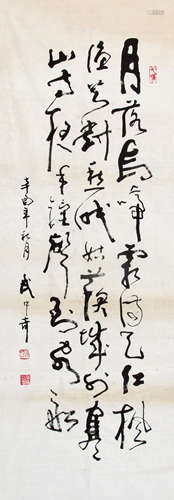 月落烏啼霜满天江楓
漁火對愁眠姑蘇城外寒
山寺夜半鐘聲到客船
辛酉年秋月
武中奇